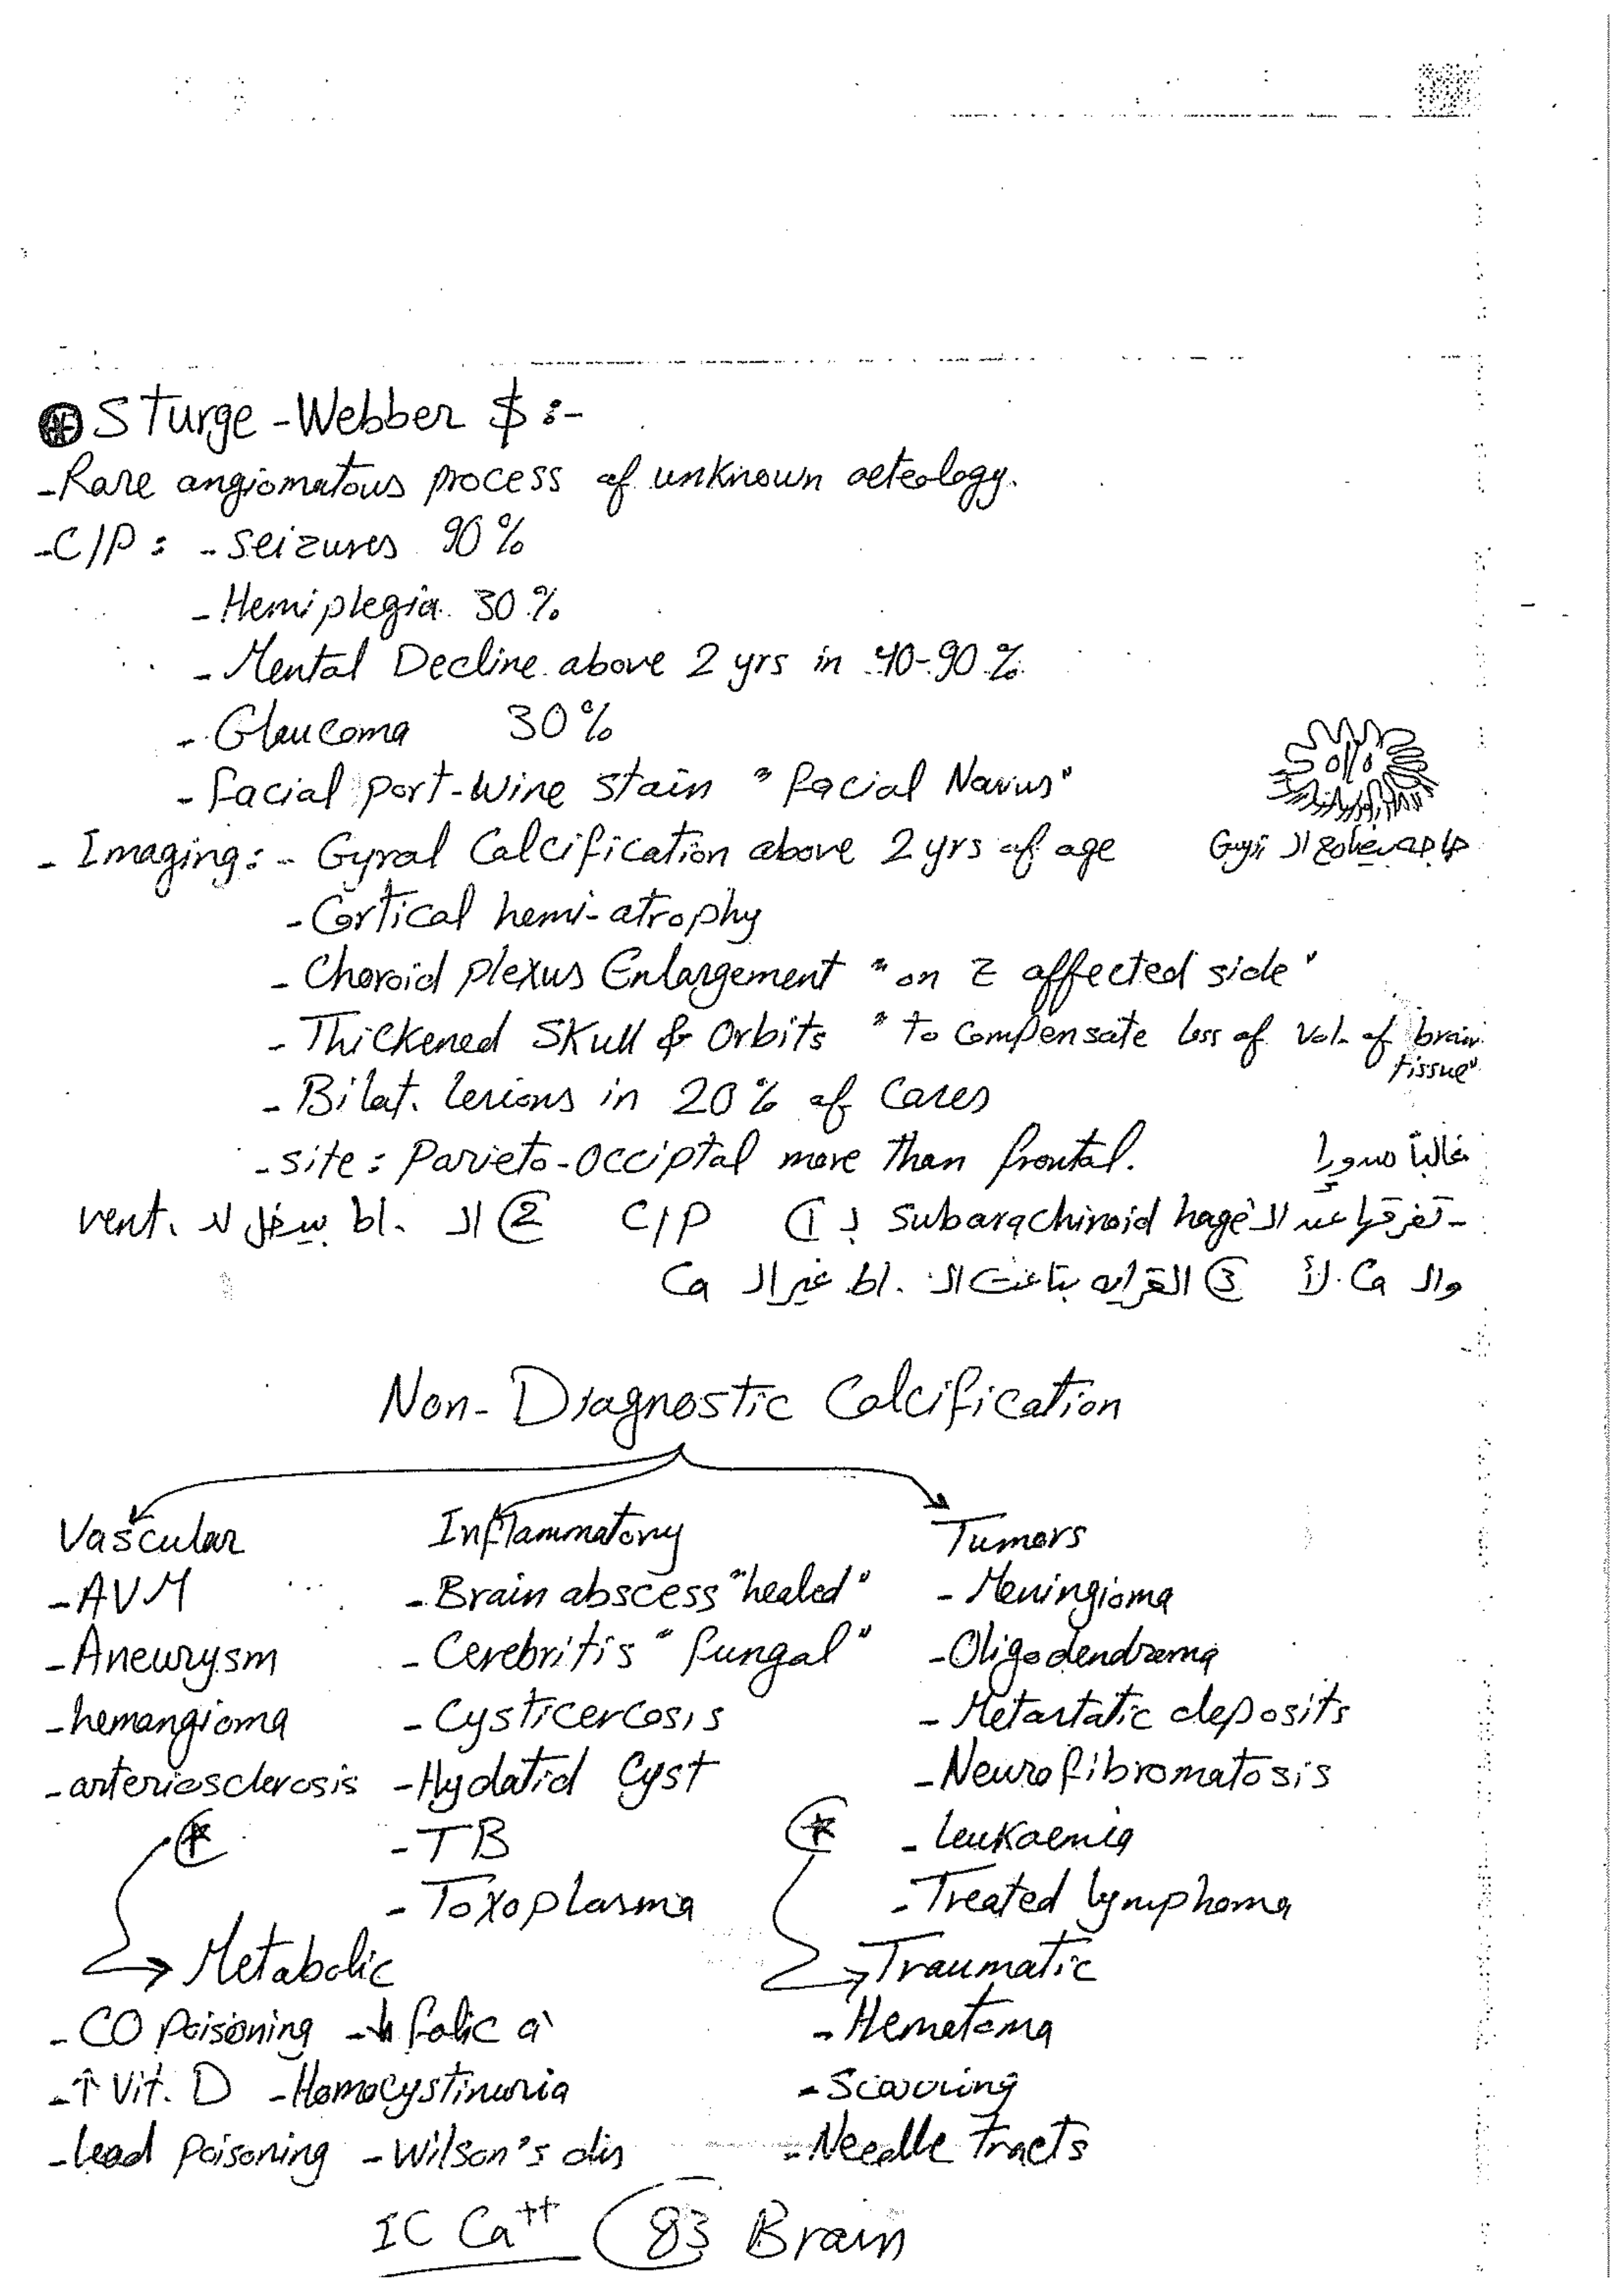 Sturge-Webber $ :-
- Rare angiomatous process of unknown aeteology.
- C/P : - Seizures 90%
- Hemiplegia 30%
- Mental Decline above 2 yrs in 40-90%
- Glaucoma 30%
- facial port-wine stain "facial Navus"
- Imaging: - Gyral Calcification above 2 yrs of age
ماجه بيطلع ال Gyri
- Cortical hemi-atrophy
- Choroid plexus Enlargement "on z affected side"
- Thickened Skull & Orbits "to compensate loss of Vol. of brain tissue"
- Bilat. lesions in 20% of Cases
- site : Parieto-Occiptal more than frontal.
غالباً
- تفرقها عند ال Subarachinoid hage' ب ① C/P ② ال bl. بيدخل لل vent.
وال Ca لأ ③ القراية بتاعت ال bl. غير ال Ca
Non-Diagnostic Calcification
Vascular
- AVM
- Aneurysm
- hemangioma
- arteriosclerosis
Inflammatory
- Brain abscess "healed"
- Cerebritis "fungal"
- Cysticercosis
- Hydatid Cyst
- TB
- Toxoplasma
Tumors
- Meningioma
- Oligodendroma
- Metastatic deposits
- Neurofibromatosis
- Leukaemia
- Treated lymphoma
Metabolic
- CO Poisoning - ↓ folic a'
- ↑ Vit. D - Homocystinuria
- lead poisoning - Wilson's dis
Traumatic
- Hematoma
- Scarring
- Needle Tracts
IC Ca++ 83 Brain